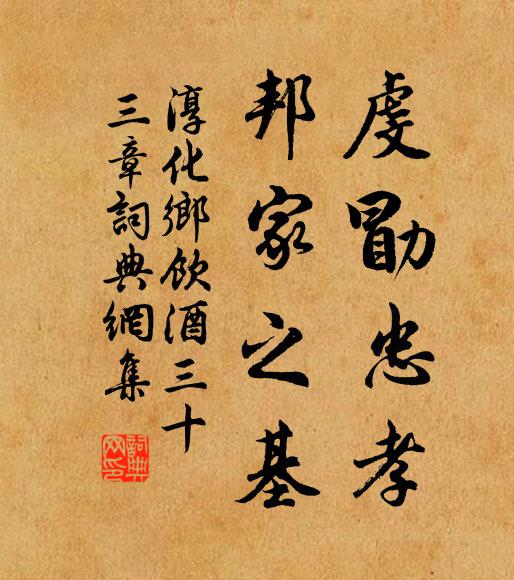 虔勖忠孝
邦家之基
淳化鄉飲酒三十
三章詞典網集
詞典網印